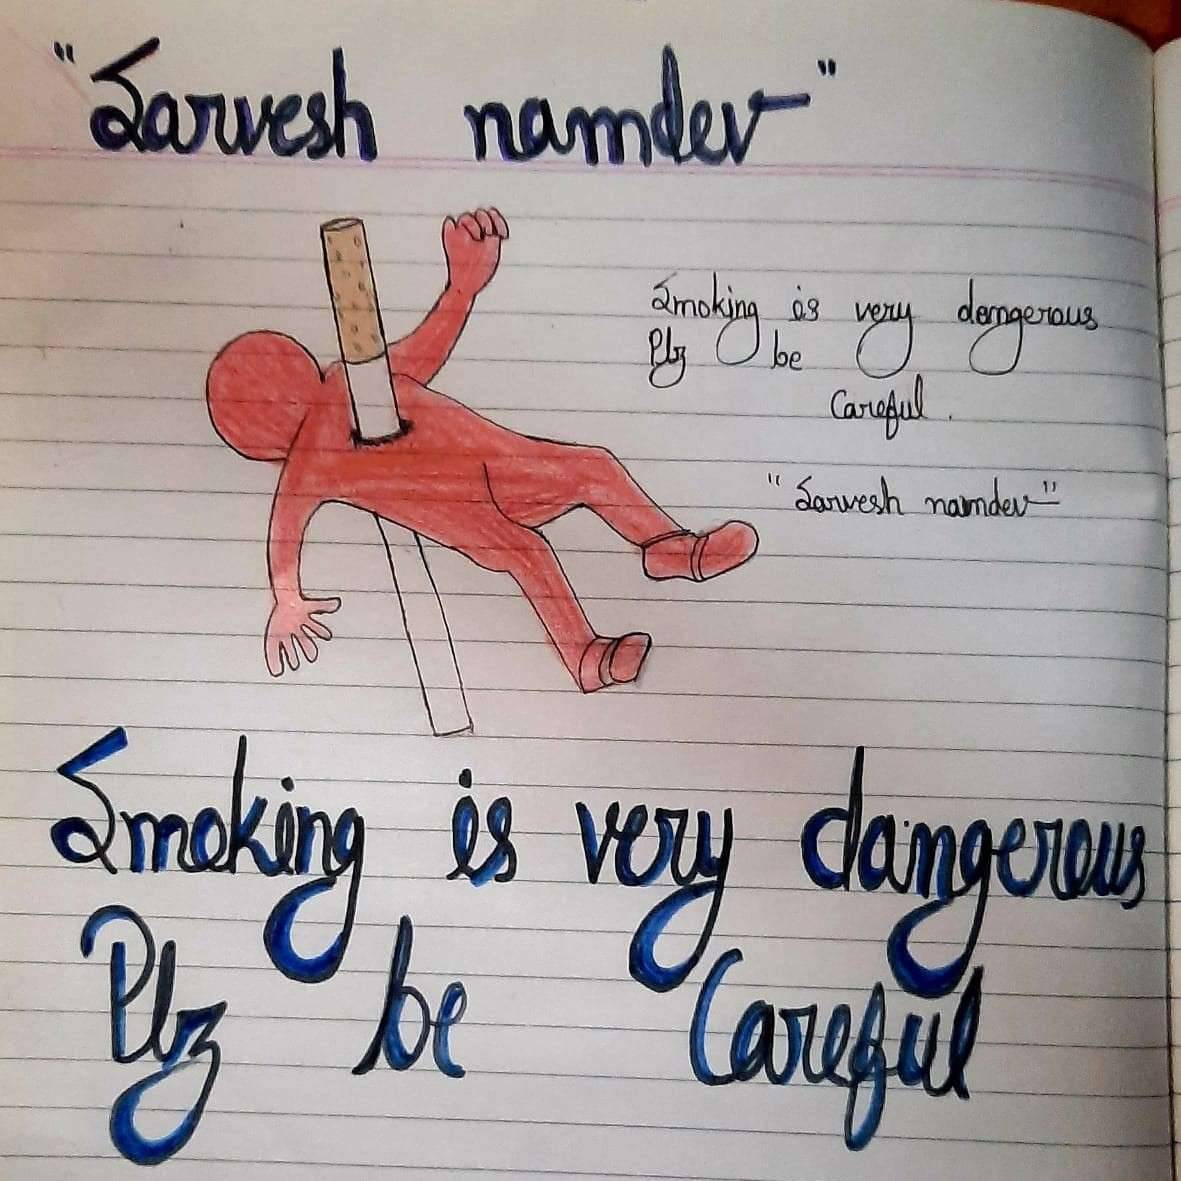 "Sarvesh namdev"
Smoking is very demgerous
Plz be
Careful.
"Sarvesh namdev"
Smoking is very dangerous
Plz be Careful